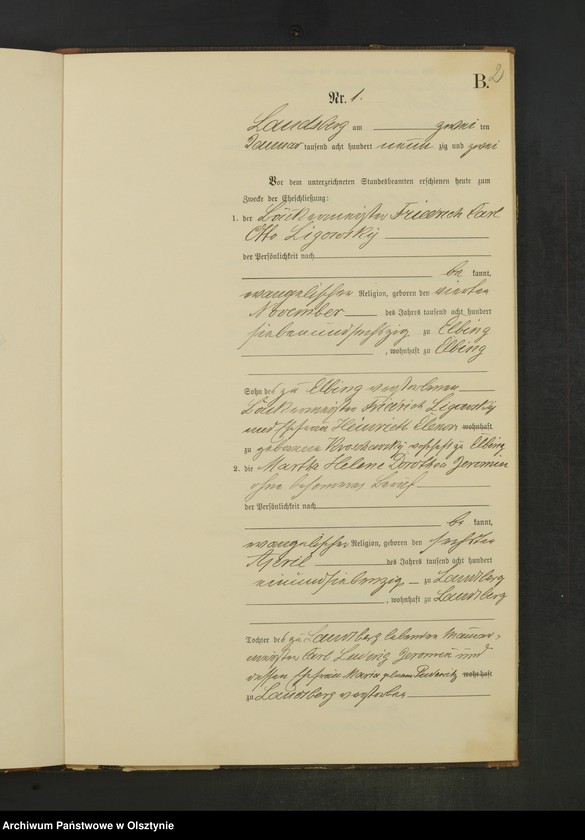 B. 2
Nr. 1.
Landsberg am zwei ten
Januar tausend acht hundert neun zig und zwei
Vor dem unterzeichneten Standesbeamten erschienen heute zum
Zwecke der Eheschließung:
1. der Bäckermeister Friedrich Carl
Otto Ligowsky
der Persönlichkeit nach
be kannt,
evangelischer Religion, geboren den vierten
November des Jahres tausend acht hundert
siebenundsechszig zu Elbing
, wohnhaft zu Elbing
Sohn des zu Elbing verstorbenen
Bäckermeister Friedrich Ligowsky
und Ehefrau Heinrich wohnhaft
zu geborene zu Elbing
2. die Martha Helene Dorothea Jeromin
ohne besonderen Beruf
der Persönlichkeit nach
be kannt,
evangelischer Religion, geboren den sechsten
April des Jahres tausend acht hundert
einundsiebenzig zu Landsberg
, wohnhaft zu Landsberg
Tochter des zu Landsberg lebenden Maurer-
meister Carl Ludwig Jeromin und
dessen Ehefrau Maria wohnhaft
zu Landsberg verstorben
Archiwum Państwowe w Olsztynie